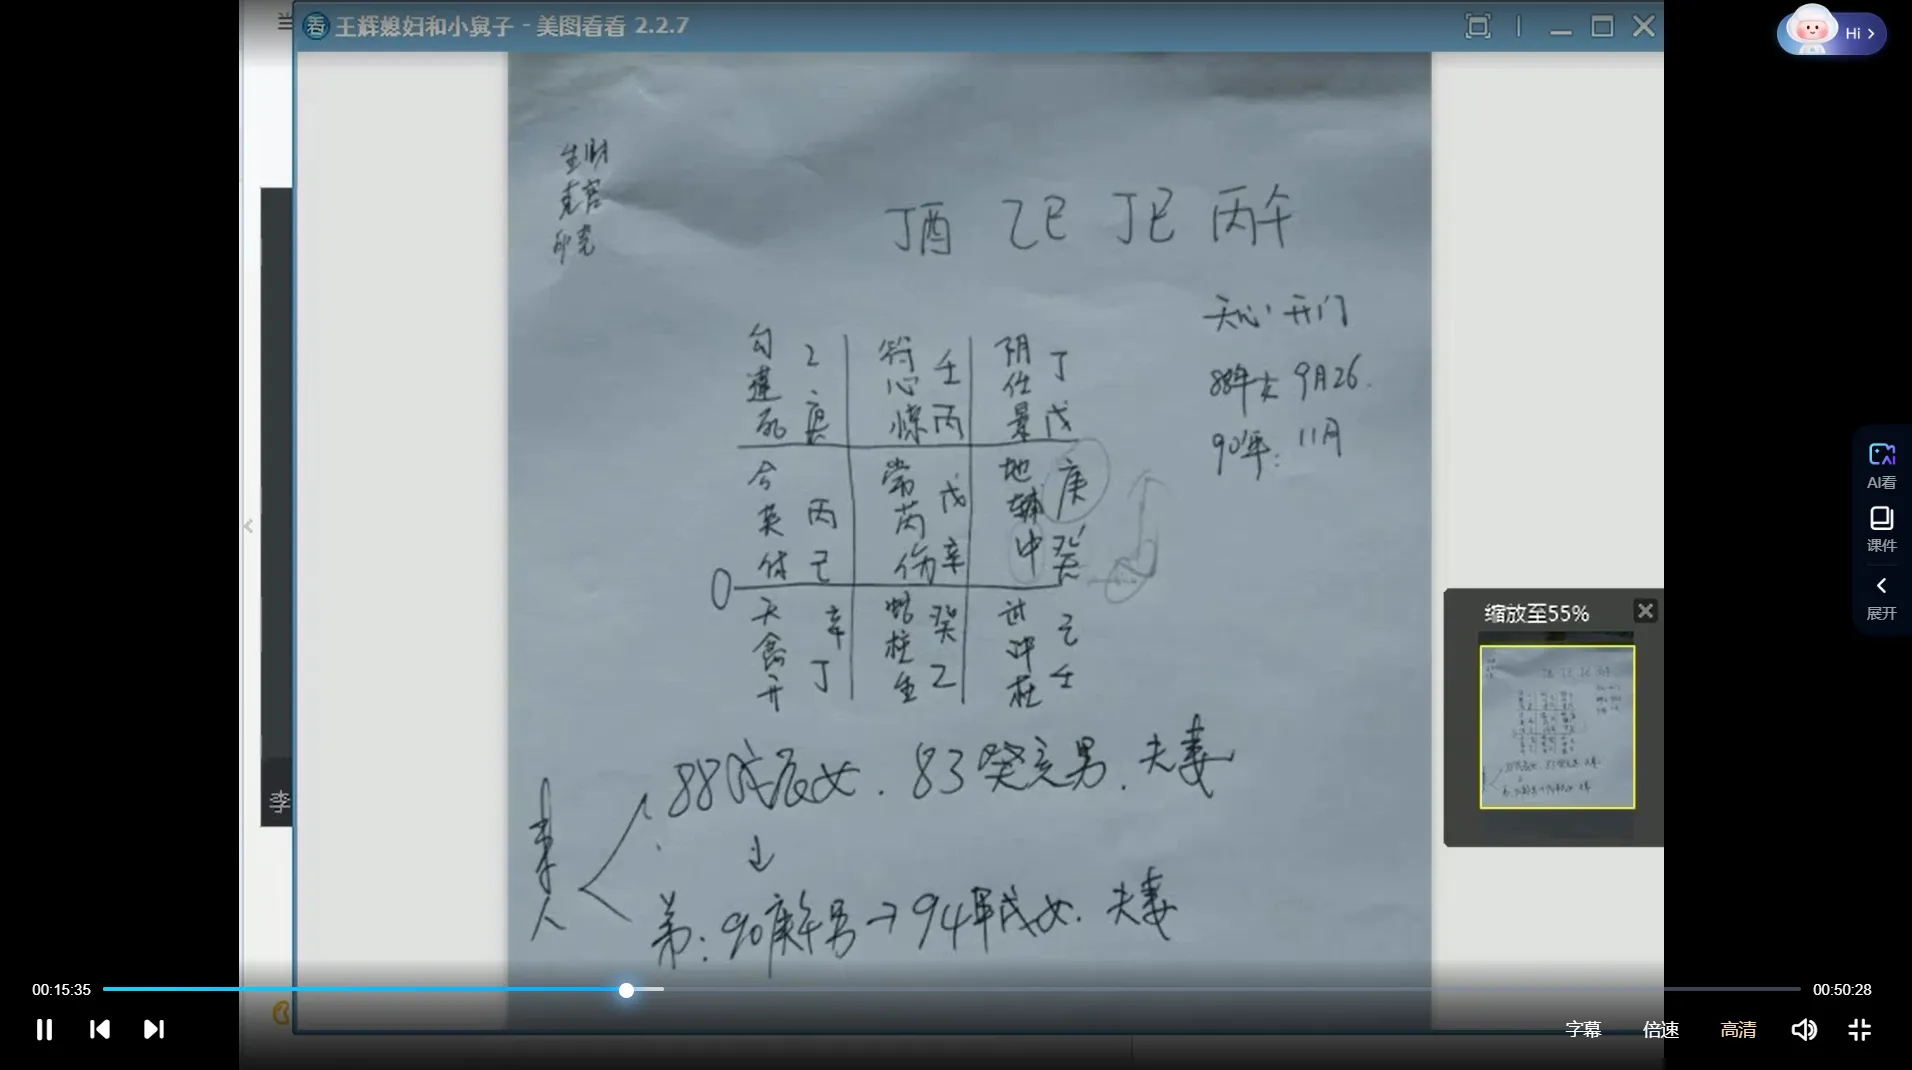 王辉媳妇和小舅子 - 美图看看 2.2.7
Hi >
生财
克官
印克
丁酉 乙巳 丁巳 丙午
天心 开门
88年女 9月26.
90年: 11月
勾 乙 符 壬 阴 丁
心 任
死 庚 惊 丙 景 戊
合 常 戊 地 庚
英 丙 芮 辅
休 己 伤 辛 中 癸
天 辛 蛇 癸 己
禽 柱 冲
开 丁 生 乙 杜 壬
88戊辰女. 83癸亥男. 夫妻
来人
弟: 90庚午男→94甲戌女. 夫妻
缩放至55%
李
AI看
课件
展开
00:15:35
00:50:28
字幕 倍速 高清